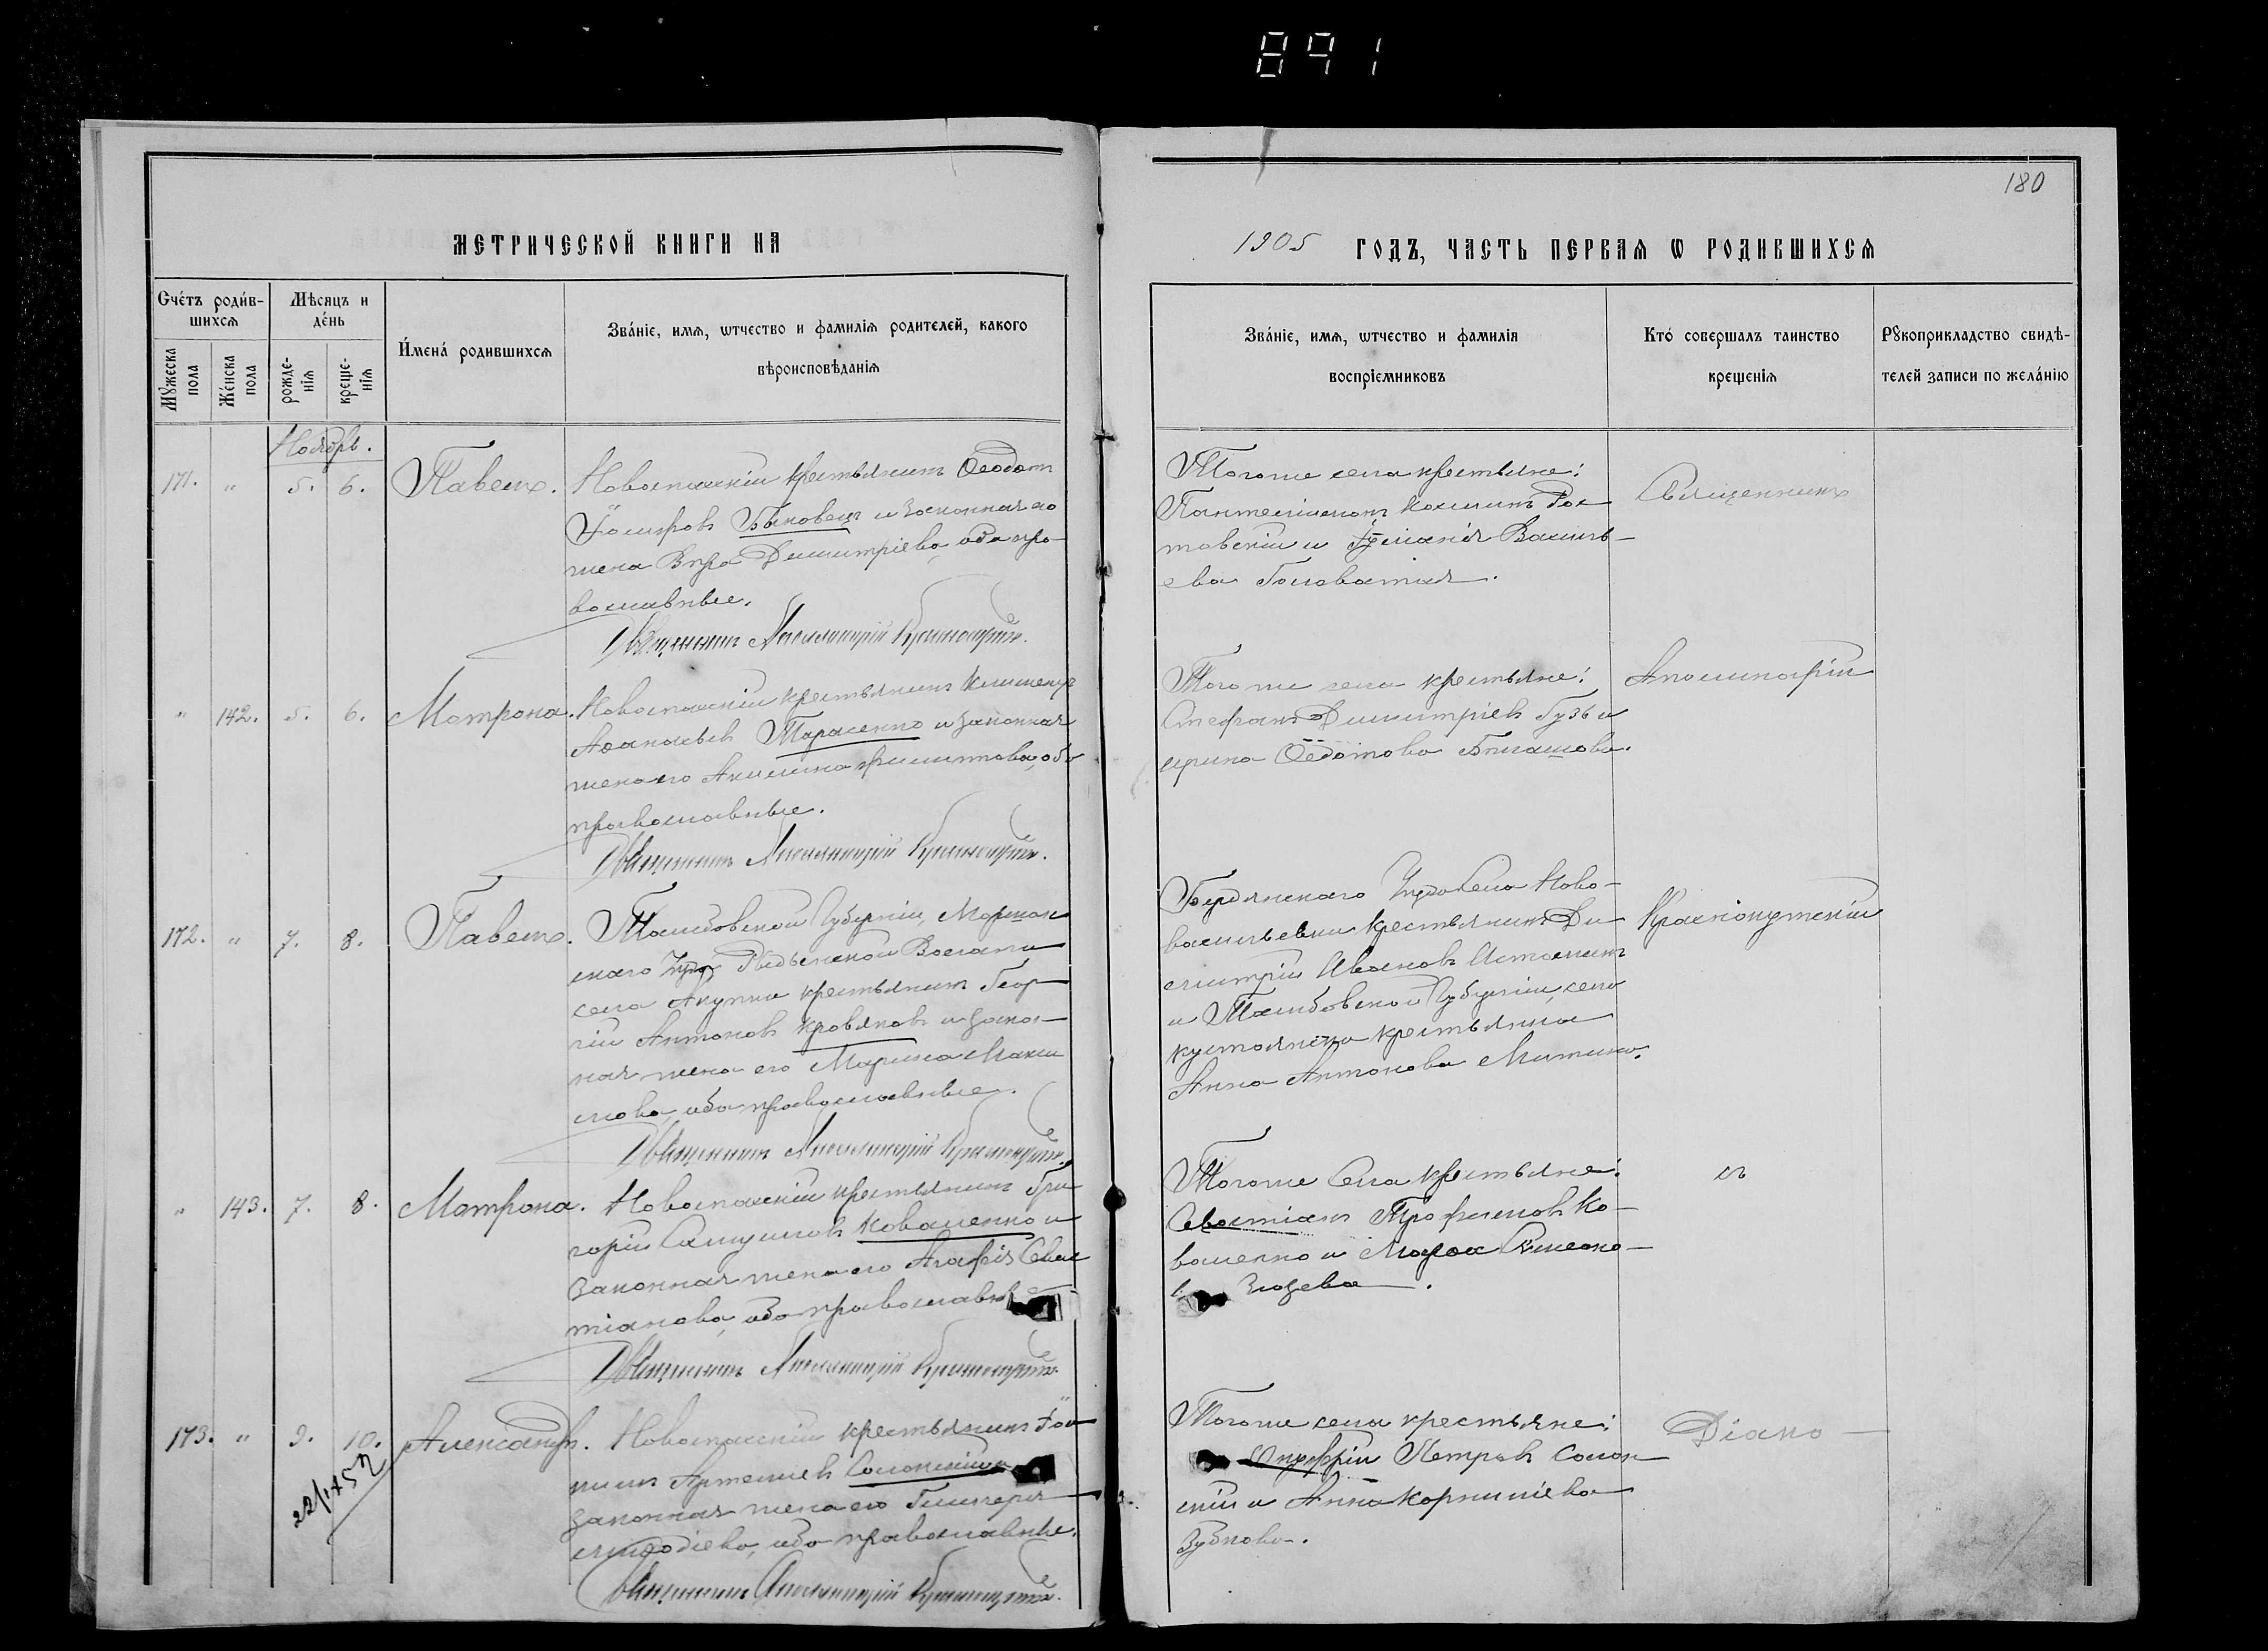 891
180
МЕТРИЧЕСКОЙ КНИГИ НА
1905 ГОДЪ, ЧАСТЬ ПЕРВАЯ Ѡ РОДИВШИХСѦ
Счéтъ роди́в-
шихсѧ
Мѣсяцъ и
дéнь
Мꙋжеска
пола
Жéнска
пола
рожде-
нїѧ
креще-
нїѧ
И́мена́ родившихсѧ
Зва́нїе, имѧ, ѿтчество и фамилїѧ родителей, какого
вѣроисповѣданїѧ
Зва́нїе, имѧ, ѿтчество и фамилїѧ
воспрїємниковъ
Кто́ совершалъ таинство
крещенїѧ
Рꙋкоприкладство свидѣ-
телей записи по жела́нїю
Ноябрь.
171. " 5. 6. Павелъ.
Новоспаскій крестьянинъ Ѳеодотъ
Быковецъ и законная его
жена Вѣра Димитріева, оба пра-
вославные.
Священникъ Аполлинарій Краснокутскій.
Того же села крестьяне:
Пантелеимонъ
товскій и Васильᲂ-
ева Головатая.
Священникъ
" 142. 5. 6. Матрона.
Новоспаскій крестьянинъ Климентъ
Аѳанасьевъ Тарасенко и законная
жена его Акилина Филиппова, оба
православные.
Священникъ Аполлинарій Краснокутскій.
Того же села крестьяне:
Стефанъ Димитріевъ Гузь и
Ирина Ѳедотова
Аполлинарій
172. " 7. 8. Павелъ.
Тамбовской Губерніи, Моршан-
скаго Волости
села крестьянинъ Геор-
гій Антоновъ Кровяковъ и закон-
ная жена его Марина Макси
мова, оба православные.
Священникъ Аполлинарій Краснокутскій.
Бердянскаго Уѣзда села Ново-
васильевки крестьянинъ Ди-
митрій Ивановъ Истоминъ
и Тамбовской Губерніи, села
крестьянка
Анна Антонова Митина.
Краснокутскій
" 143. 7. 8. Матрона.
Новоспаскій крестьянинъ Гри
горій Самуиловъ Коваленко и
законная жена его Агафія Севас
тіанова, оба православные
Священникъ Аполлинарій Краснокутскій.
Того же села крестьяне:
Севастіанъ Трофимовъ Ко-
валенко и Симеоно-
съ
173. " 9. 10. Александръ.
Новоспаскій крестьянинъ Іоа
Артемиевъ Солонскій и
законная жена его Гликерія
Меѳодіева, оба православные.
Священникъ Аполлинарій Краснокутскій.
Того же села крестьяне:
Онуфрій Петровъ Солон
скій и Анна Корниліева
Зубкова.
Діако-